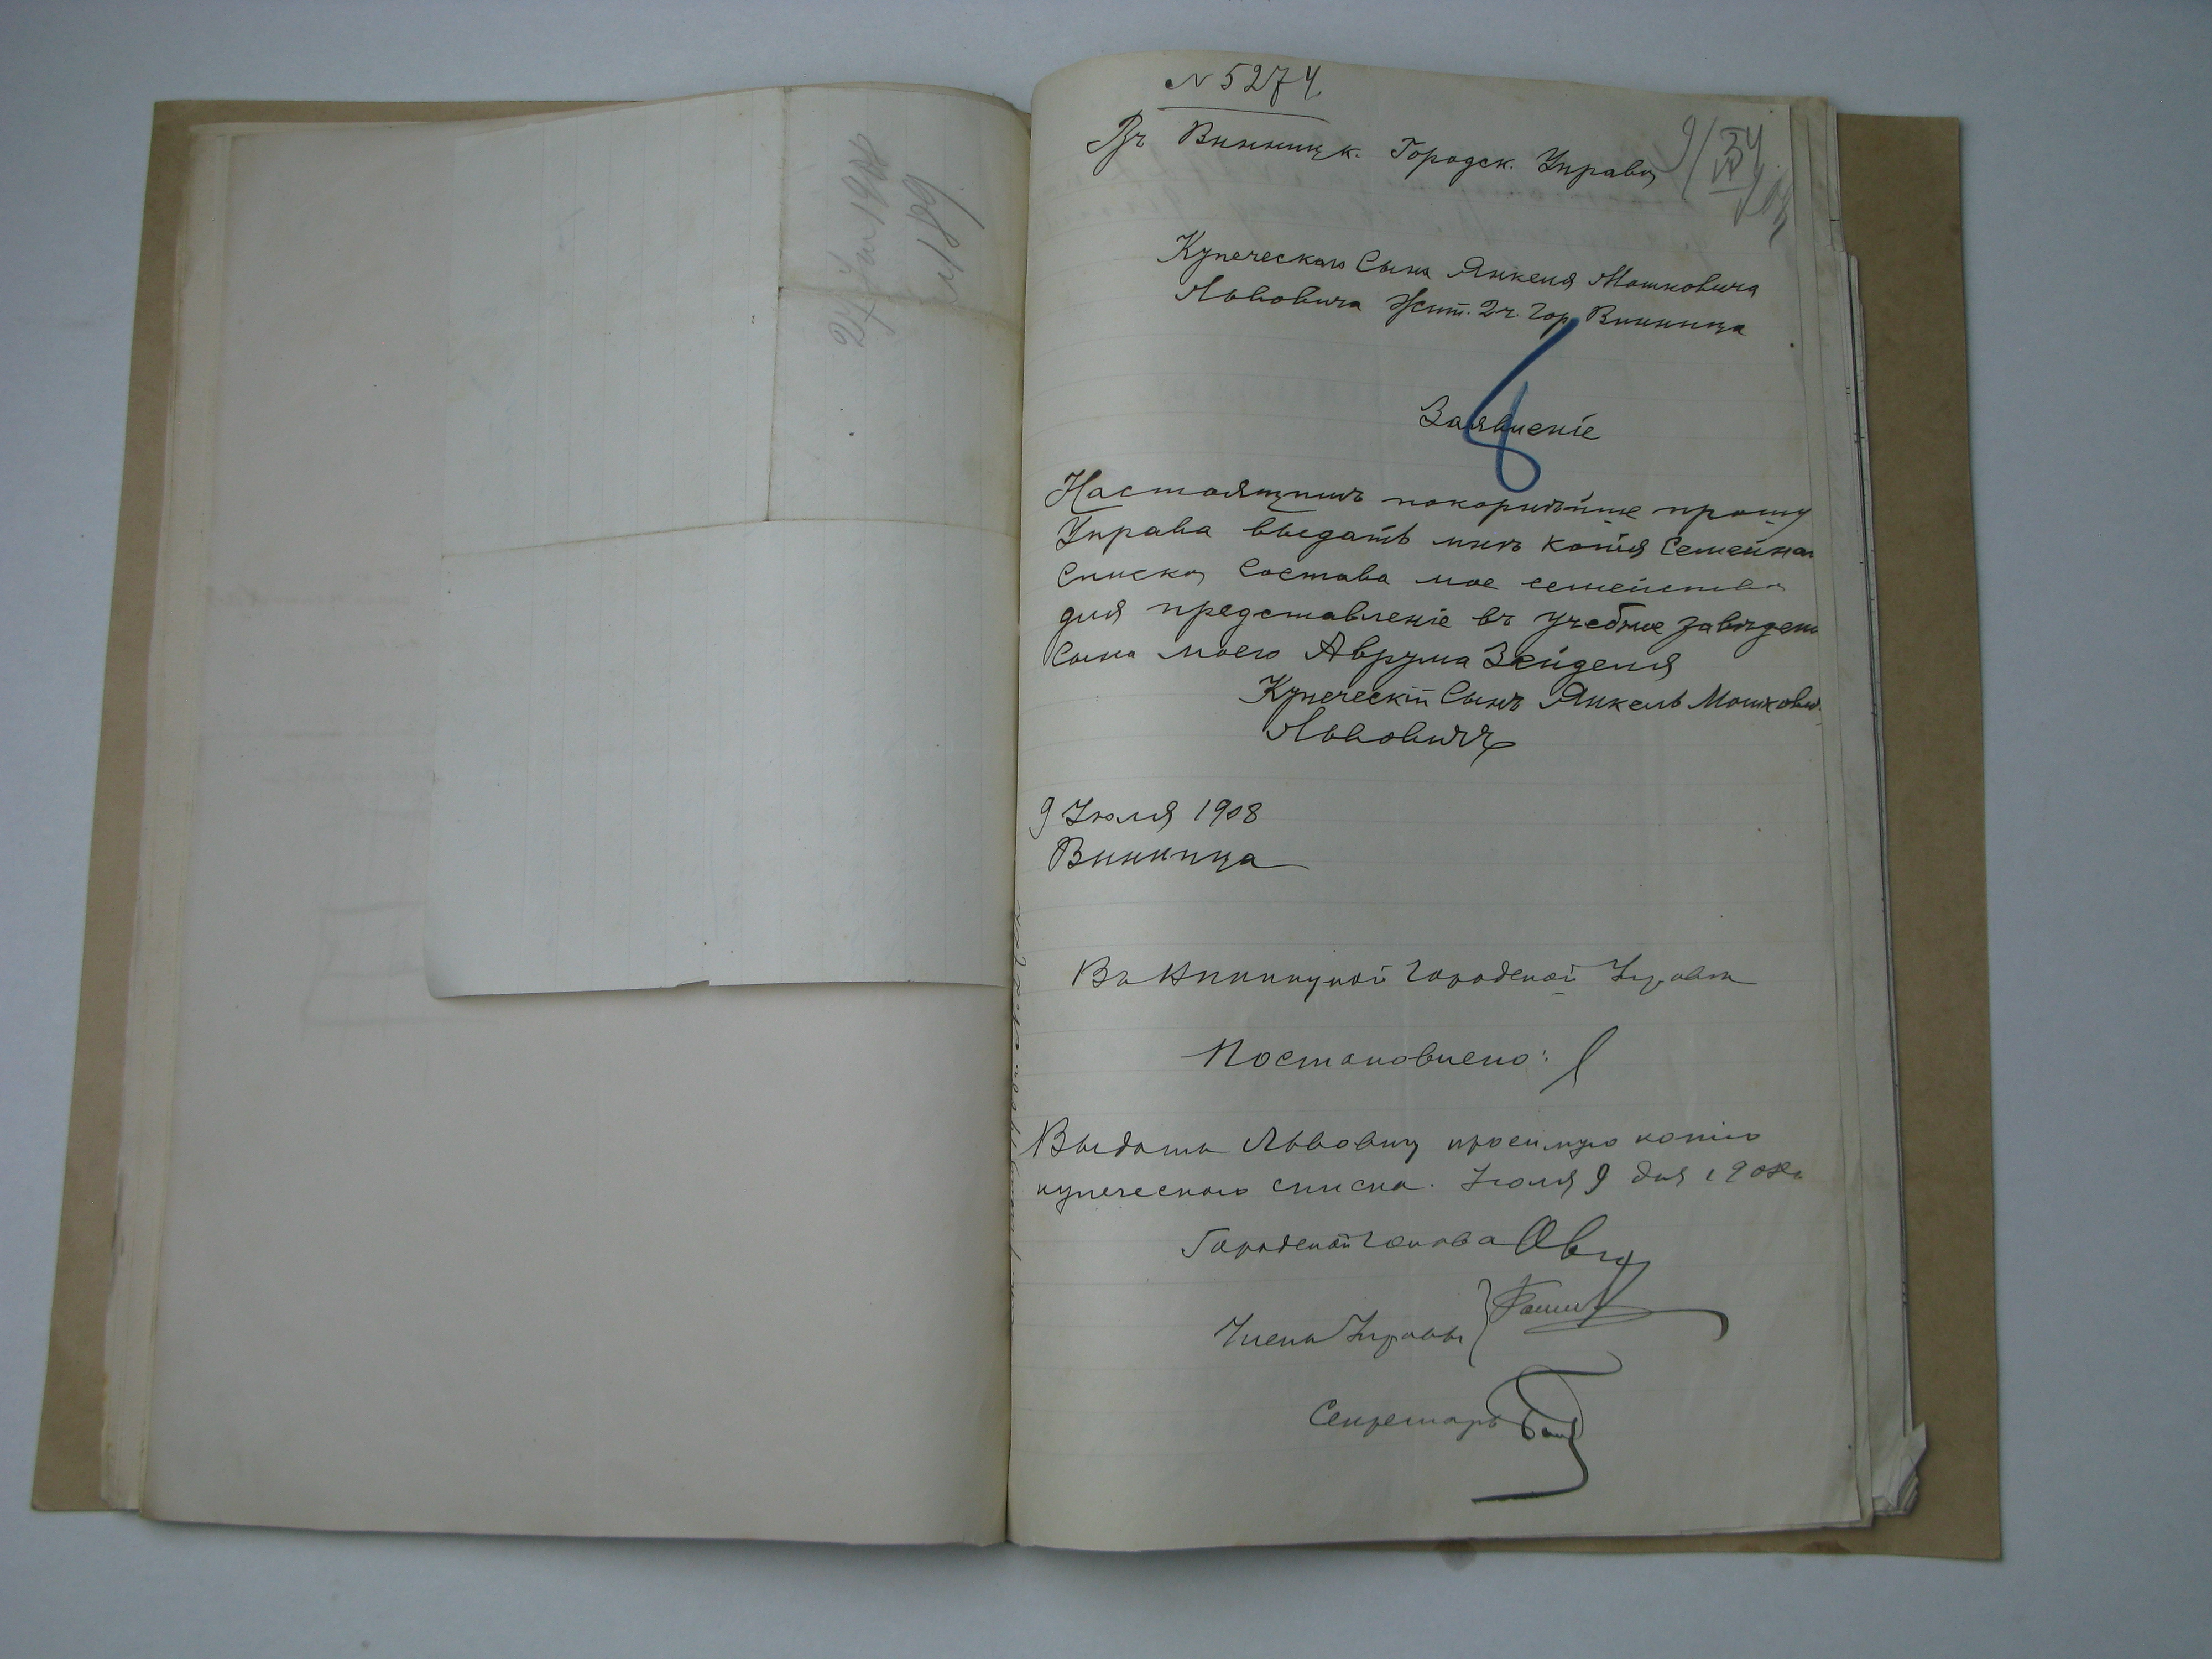 27 Іюля 1908
№ 189
№ 5274
Въ Винницк. Городск. Управу
34
Купеческаго Сына Янкеля Мошковича
Львовича Жит. 2 ч. Гор. Винница
8
Заявленіе
Настоящимъ покорнѣйше прошу
Управа выдать мнѣ копія Семейная
Списку Состава мое семейства
для представленіе въ учебное заведен
Сына моего Аврума Зейделя
Купеческій Сынъ Янкель Мошкович
Львовичъ
9 Іюля 1908
Винница
Въ Винницкой Городской Управѣ
Постановлено:
Выдать Львовичу просимую копію
купеческаго списка. Іюля 9 дня 1908 г.
Городской Голова
Члены Управы
Секретарь